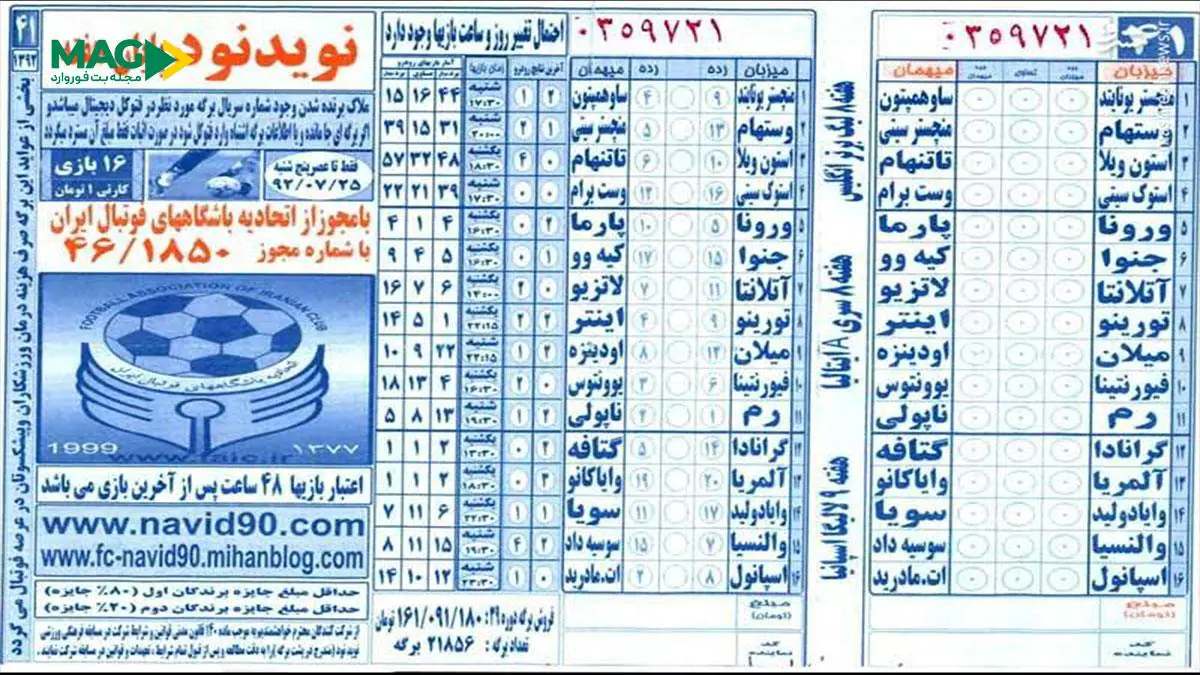 ۴۱
۱۳۹۲
نوید نود
MAG
مجله بت فوروارد
ملاک برنده شدن وجود شماره سریال برگه مورد نظر در فتوکل دیجیتال میباشد و
۱۶ بازی
کارتی ۱ تومان
فقط تا عصر پنج شنبه
۹۲/۰۷/۲۵
با مجوز از اتحادیه باشگاههای فوتبال ایران
با شماره مجوز ۴۶/۱۸۵۰
FOOTBALL ASSOCIATION OF IRANIAN CLUB
اتحادیه باشگاههای فوتبال ایران
1999
۱۳۷۷
اعتبار بازیها ۴۸ ساعت پس از آخرین بازی می باشد
www.navid90.com
www.fc-navid90.mihanblog.com
حداقل مبلغ جایزه برندگان اول (۸۰٪ جایزه)
حداقل مبلغ جایزه برندگان دوم (۲۰٪ جایزه)
بخشی از عواید این برگه صرف هزینه درمان ورزشکاران و پیشکسوتان در عرصه فوتبال می گردد
احتمال تغییر روز و ساعت بازیها وجود دارد
۰۳۵۹۷۲۱
میزبان زده زده میهمان
۱ منچستر یونایتد ۹ ۴ ساوهمپتون ۲ ۱ شنبه ۱۷:۳۰ ۴۴ ۱۶ ۱۵
۲ وستهام ۱۳ ۵ منچستر سیتی ۱ ۲ شنبه ۲۰:۰۰ ۳۱ ۱۵ ۳۹
۳ استون ویلا ۱۰ ۶ تاتنهام ۰ ۴ یکشنبه ۱۸:۳۰ ۴۸ ۳۲ ۵۷
۴ استوک سیتی ۱۶ ۱۲ وست برام ۰ ۰ شنبه ۱۷:۳۰ ۳۹ ۲۱ ۲۲
۵ ورونا ۵ ۱۰ پارما ۲ ۰ یکشنبه ۱۶:۳۰ ۴ ۱ ۴
۶ جنوا ۱۵ ۱۷ کیه وو ۰ ۱ یکشنبه ۱۶:۳۰ ۵ ۴ ۹
۷ آتلانتا ۱۱ ۷ لاتزیو ۰ ۲ یکشنبه ۱۴:۰۰ ۶ ۷ ۱۶
۸ تورینو ۹ ۴ اینتر ۰ ۲ یکشنبه ۲۲:۱۵ ۵ ۱ ۱۴
۹ میلان ۱۲ ۸ اودینزه ۲ ۱ شنبه ۲۲:۱۵ ۲۲ ۹ ۱۰
۱۰ فیورنتینا ۶ ۳ یوونتوس ۰ ۲ یکشنبه ۱۶:۳۰ ۱۳ ۴ ۱۸
۱۱ رم ۱ ۲ ناپولی ۲ ۱ شنبه ۱۹:۳۰ ۱۳ ۸ ۵
۱۲ گرانادا ۱۴ ۵ گتافه ۲ ۰ یکشنبه ۱۳:۳۰ ۲ ۱ ۱
۱۳ آلمریا ۲۰ ۱۹ وایاکانو ۳ ۰ یکشنبه ۱۸:۳۰ ۲ ۱ ۱
۱۴ وایادولید ۱۷ ۱۱ سویا ۱ ۱ یکشنبه ۲۲:۳۰ ۶ ۱۱ ۷
۱۵ والنسیا ۷ ۱۵ سوسیه داد ۲ ۴ شنبه ۱۹:۳۰ ۱۵ ۱۱ ۸
۱۶ اسپانیول ۸ ۲ ات.مادرید ۰ ۱ شنبه ۲۳:۳۰ ۱۲ ۱۰ ۱۴
فروش برگه دوره ۲۹: ۱۶۱/۰۹۱/۱۸۰ تومان
تعداد برگه : ۲۱۸۵۶ برگه
مبلغ
(تومان)
کد
نماینده
هفته ۸ لیگ برتر انگلیس
هفته ۸ سری A ایتالیا
هفته ۹ لالیگا اسپانیا
۰۳۵۹۷۲۱
میزبان میهمان
۱ منچستر یونایتد ساوهمپتون
۲ وستهام منچستر سیتی
۳ استون ویلا تاتنهام
۴ استوک سیتی وست برام
۵ ورونا پارما
۶ جنوا کیه وو
۷ آتلانتا لاتزیو
۸ تورینو اینتر
۹ میلان اودینزه
۱۰ فیورنتینا یوونتوس
۱۱ رم ناپولی
۱۲ گرانادا گتافه
۱۳ آلمریا وایاکانو
۱۴ وایادولید سویا
۱۵ والنسیا سوسیه داد
۱۶ اسپانیول ات.مادرید
مبلغ
(تومان)
کد
نماینده